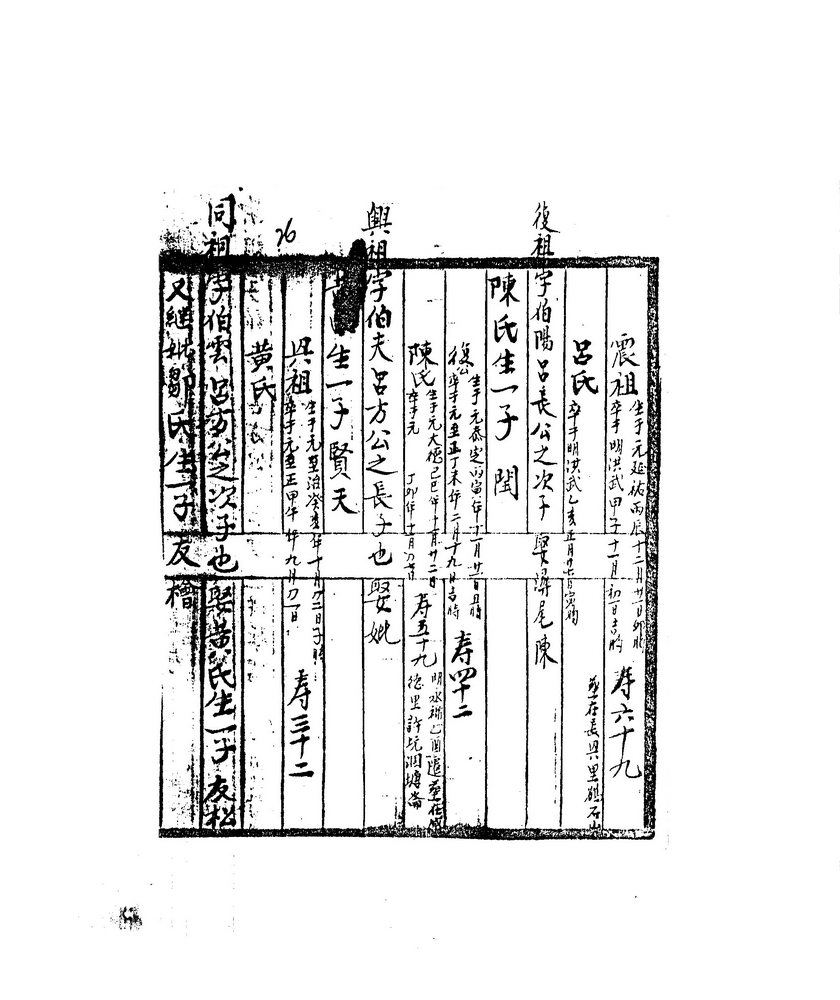 震祖 生于元延祐丙辰十二月廿一日卯時
卒于明洪武甲子十一月初一日吉時 寿六十九
呂氏 卒于明洪武乙亥正月廿七日寅時
葬在長興里 石山
復祖字伯陽呂長公之次子 娶 尾陳
陳氏生一子 閏
復公 生于元泰定丙寅年十一月廿一日丑時
卒于元至正丁未年二月十九日吉時 寿四十二
陳氏 生于元大德己巳年十一月廿二日
卒于元 丁卯年十一月 寿五十九
明永樂乙酉 葬在感
德里許坑洄 崙
興祖字伯夫呂方公之長子也 娶妣
黃氏生一子賢天
興祖 生于元至治癸亥年十月廿二日子時
卒于元至正甲午年九月初一日 寿三十二
黃氏
26
同祖字伯雲呂方公之次子也 娶黃氏生一子友松
又繼妣 氏生一子友檜